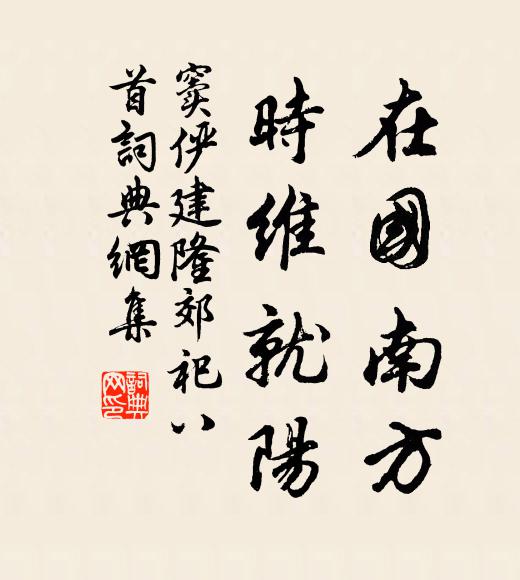 在國南方
時維就陽
竇俨建隆郊祀八
首詞典網集
詞典
网印